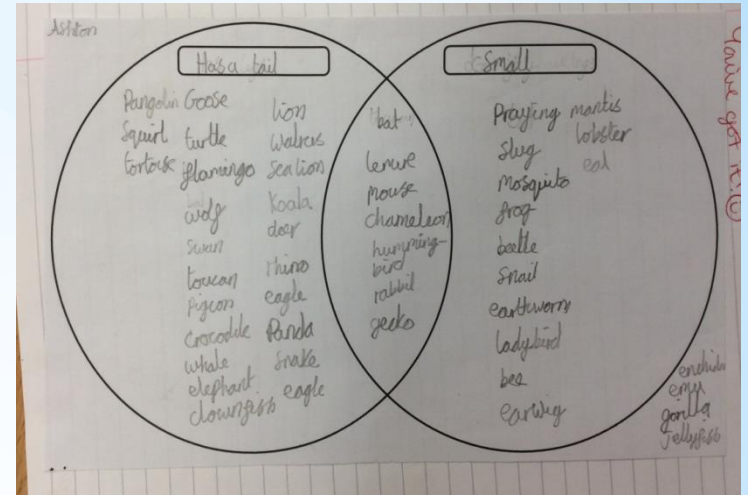 Ashton
Has a tail
Small
Pangolin Goose
Squirl turtle
tortoise flamingo
wolf
swan
toucan
Pigeon
crocodile
whale
elephant
clownfish
lion
walrus
Sea lion
Koala
deer
rhino
eagle
Panda
Snake
eagle
bat
lemure
mouse
chameleon
humming-
bird
rabbit
gecko
Praying mantis
slug lobster
mosquito
frog
beetle
Snail
earthworm
ladybird
bee
earwig
emu
gorilla
jellyfish
You've got it!